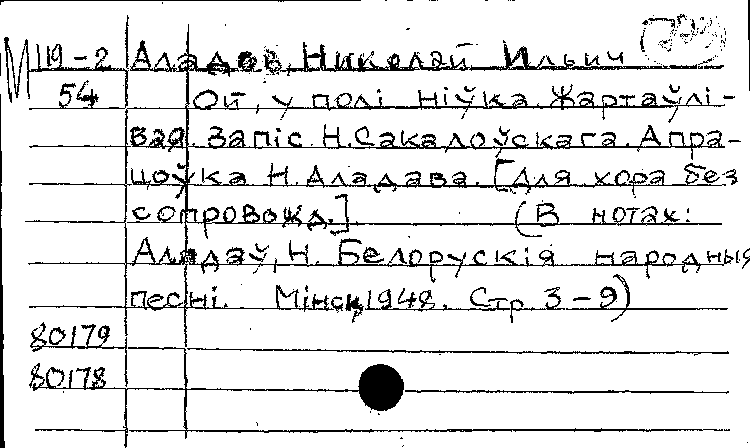 М 119-2 Аладов, Николай Ильич
54 Ой, у полі ніўка. Жартаўлі-
вая. Запіс Н. Сакалоўскага. Апра-
цоўка Н. Аладава. [Для хора без
сопровожд.] (В нотах:
Аладаў, Н. Белорускія народныя
песні. Мінск, 1948. Стр. 3-9)
80179
80178